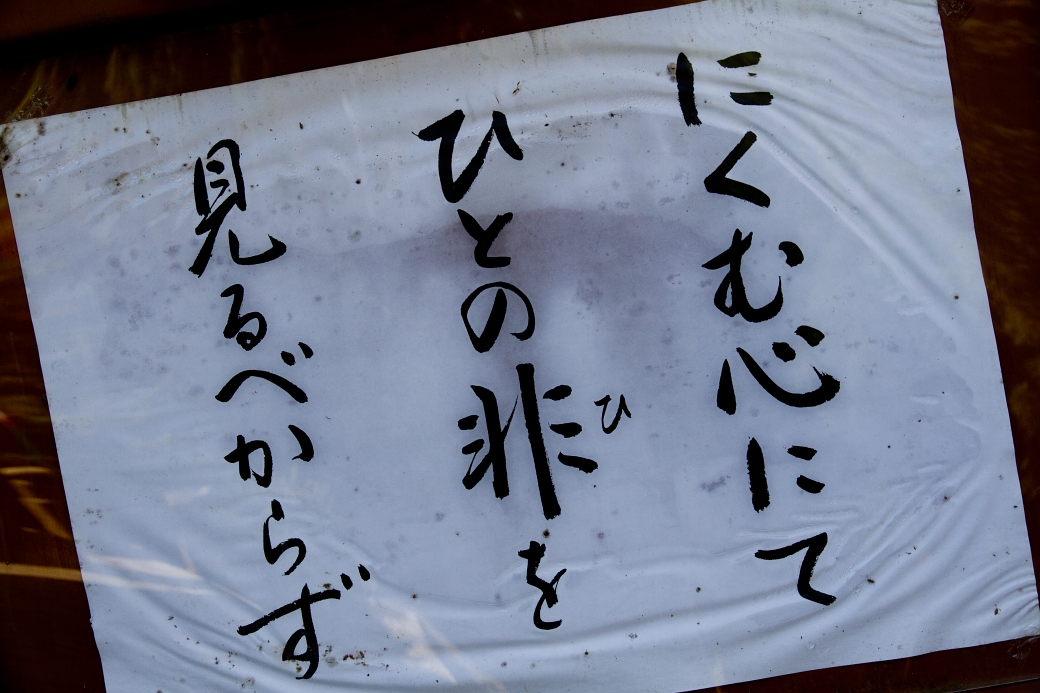 にくむ心にて
ひとの非を
ひ
見るべからず